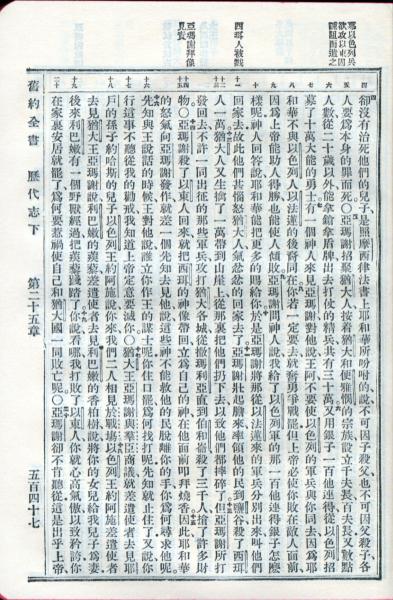 雇以色列兵
欲攻以東因
神阻而遣之
西珥人被戮
亞瑪謝拜像
見責
卻沒有治死他們的兒子是照摩西律法書上耶和華所吩咐的說不可因子殺父也不可因父殺子各
人要爲本身的罪而死○亞瑪謝招聚猶大人按着猶大和便雅憫的宗族設立千夫長百夫長又數點
人數從二十歲以外能拿鎗拿盾牌出去打仗的精兵共有三十萬又用銀子一百他連得從以色列招
募了十萬大能的勇士有一個神人來見亞瑪謝對他說王阿不要使以色列的軍兵與你同去因爲耶
和華不與以色列人以法蓮的後裔同在你若一定要去就奮勇爭戰罷但上帝必使你敗在敵人面前
因爲上帝能助人得勝也能使人傾敗亞瑪謝問神人說我給了以色列軍的那一百他連得銀子怎麼
樣呢神人回答說耶和華能把更多的賜給你於是亞瑪謝將那從以法蓮來的軍兵分別出來叫他們
回家去故此他們甚惱怒猶大人氣忿忿的回家去了亞瑪謝壯起膽來率領他的民到鹽谷殺了西珥
人一萬猶大人又生擒了一萬帶到山崖上從那裏把他們扔下去以致他們都摔碎了但亞瑪謝所打
發回去不許一同出征的那些軍兵攻打猶大各城從撒瑪利亞直到伯和崙殺了三千人搶了許多財
物○亞瑪謝殺了以東人回來就把西珥的神像帶回立爲自己的神在他面前叩拜燒香因此耶和華
的怒氣向亞瑪謝發作就差一個先知去見他說這些神不能救他的民脫離你的手你爲何尋求他呢
先知與王說話的時候王對他說誰立你作王的謀士呢你住口罷爲何找打呢先知就止住了又說你
行這事不聽從我的勸戒我知道上帝定意要滅你○猶大王亞瑪謝與羣臣商議就差遣使者去見耶
戶的孫子約哈斯的兒子以色列王約阿施說你來我們二人相見於戰塲以色列王約阿施差遣使者
去見猶大王亞瑪謝說利巴嫩的蒺藜差遣使者去見利巴嫩的香柏樹說將你的女兒給我兒子爲妻
後來利巴嫩有一個野獸經過把蒺藜踐踏了你說看哪我打敗了以東人你就心高氣傲以致矜誇你
在家裏安居就罷了爲何要惹禍使自己和猶大國一同敗亡呢○亞瑪謝卻不肯聽從這是出乎上帝
舊約全書 歷代志下 第二十五章 五百四十七